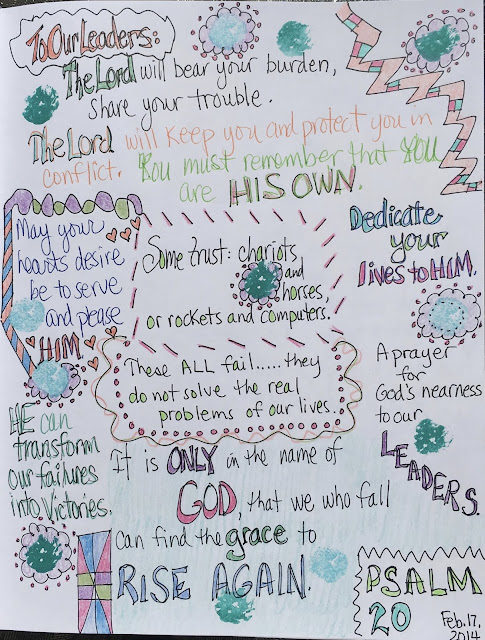 To Our Leaders:
The Lord will bear your burden,
share your trouble.
The Lord will keep you and protect you in
conflict. You must remember that YOU
are HIS OWN.
May your
hearts desire
be to serve
and please
HIM.
Some trust: chariots
and
horses,
or rockets and computers.
Dedicate
your
lives to HIM.
These ALL fail.....they
do not solve the real
problems of our lives.
A prayer
for
God's nearness
to our
LEADERS.
HE can
transform
our failures
into Victories.
It is ONLY in the name of
GOD, that we who fall
can find the grace to
RISE AGAIN.
PSALM
20
Feb. 17,
2014